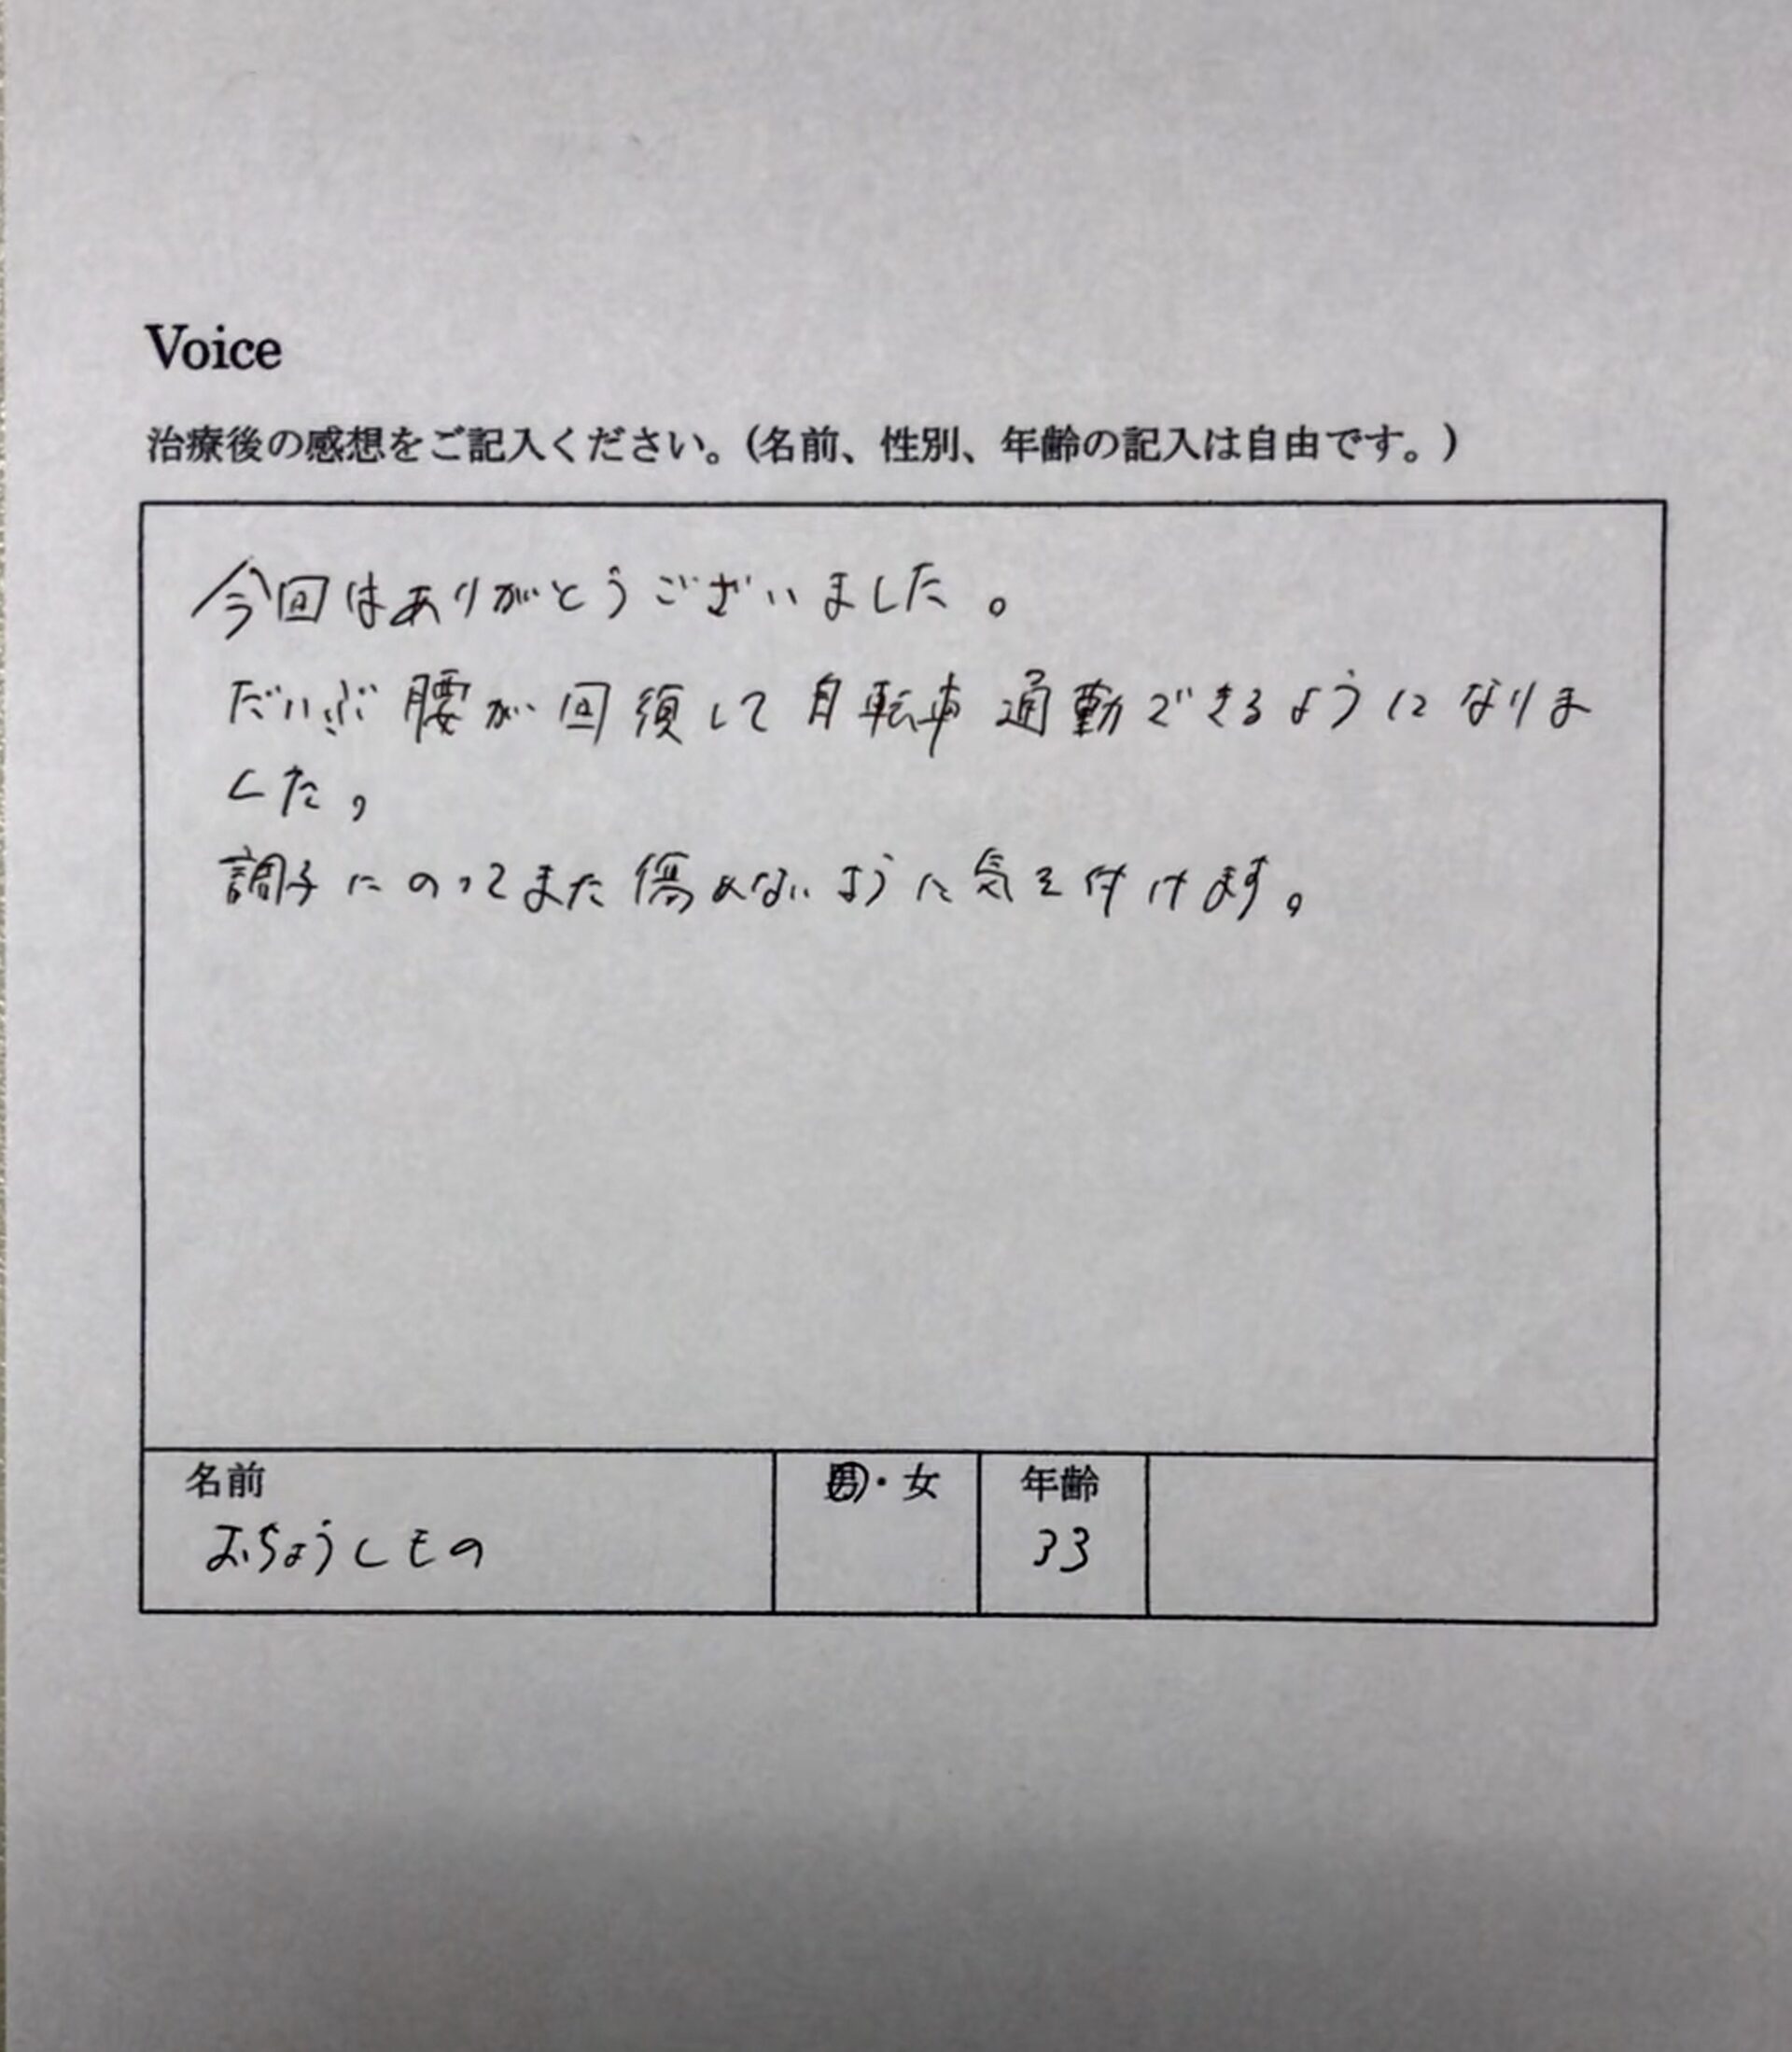 Voice
治療後の感想をご記入ください。(名前、性別、年齢の記入は自由です。)
今回はありがとうございました。
だいぶ腰が回復して自転車通勤できるようになりま
した。
調子にのってまた傷めないように気を付けます。
名前 男・女 年齢
おちょうしもの 33